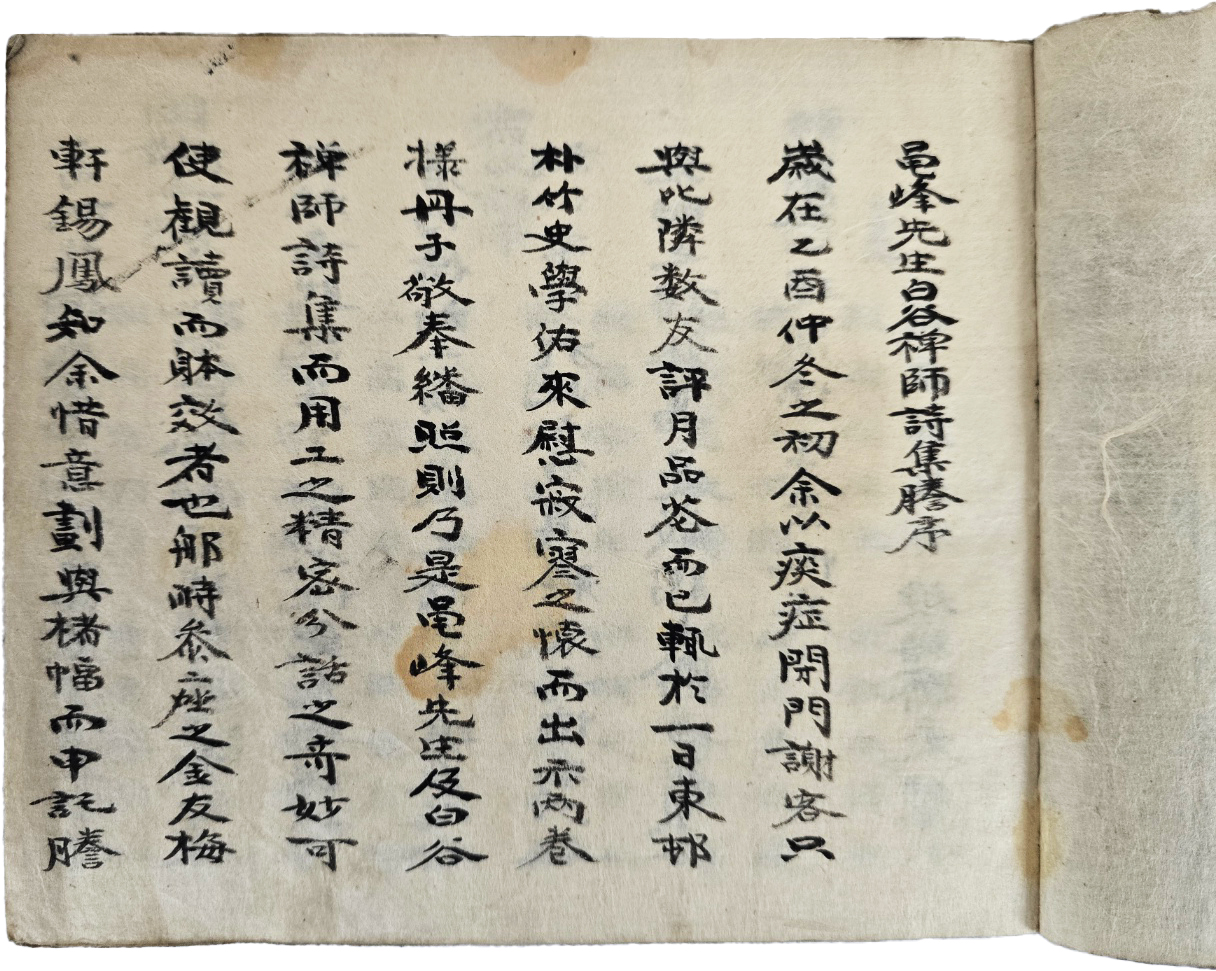 黽峰先生白谷禅師詩集謄序
歳在乙酉仲冬之初余以痰症閉門謝客只
與比隣数友評月品花而已輒於一日東邨
朴竹史學佑來慰寂寥之懷而出示两巻
様冊子敬奉繙照則乃是黽峰先生及白谷
禅師詩集而用工之精密分話之奇妙可
使観讀而躰效者也那時叅座之金友梅
軒錫鳳知余惜意劃與楮幅而申託謄